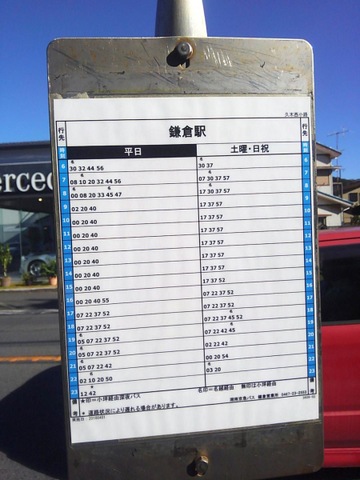 久木西小路
行先
鎌倉駅
行先
平日
土曜・日祝
6 30 32 44 56
30 37
7 08 10 20 32 44 56
07 30 37 57
8 00 08 20 33 45 47
17 30 37 57
9 02 20 40
17 37 57
10 00 20 40
17 37 57
11 00 20 40
17 37 57
12 00 20 40
17 37 57
13 00 20 40
17 37 57
14 00 20 40
17 37 52
15 00 20 40
07 22 37 52
16 00 20 40 55
07 22 37 52
17 07 22 37 52
07 22 37 45 52
18 07 22 37 52
07 22 42 45
19 05 07 22 37 52
02 22 42
20 05 07 22 37 52
00 20 54
21 05 07 22 42
03 20
22 02 10 20 50
23 12 42
備考
★印=小坪経由深夜バス
名印=名越経由 無印は小坪経由
◆ 道路状況により遅れる場合があります。
erced